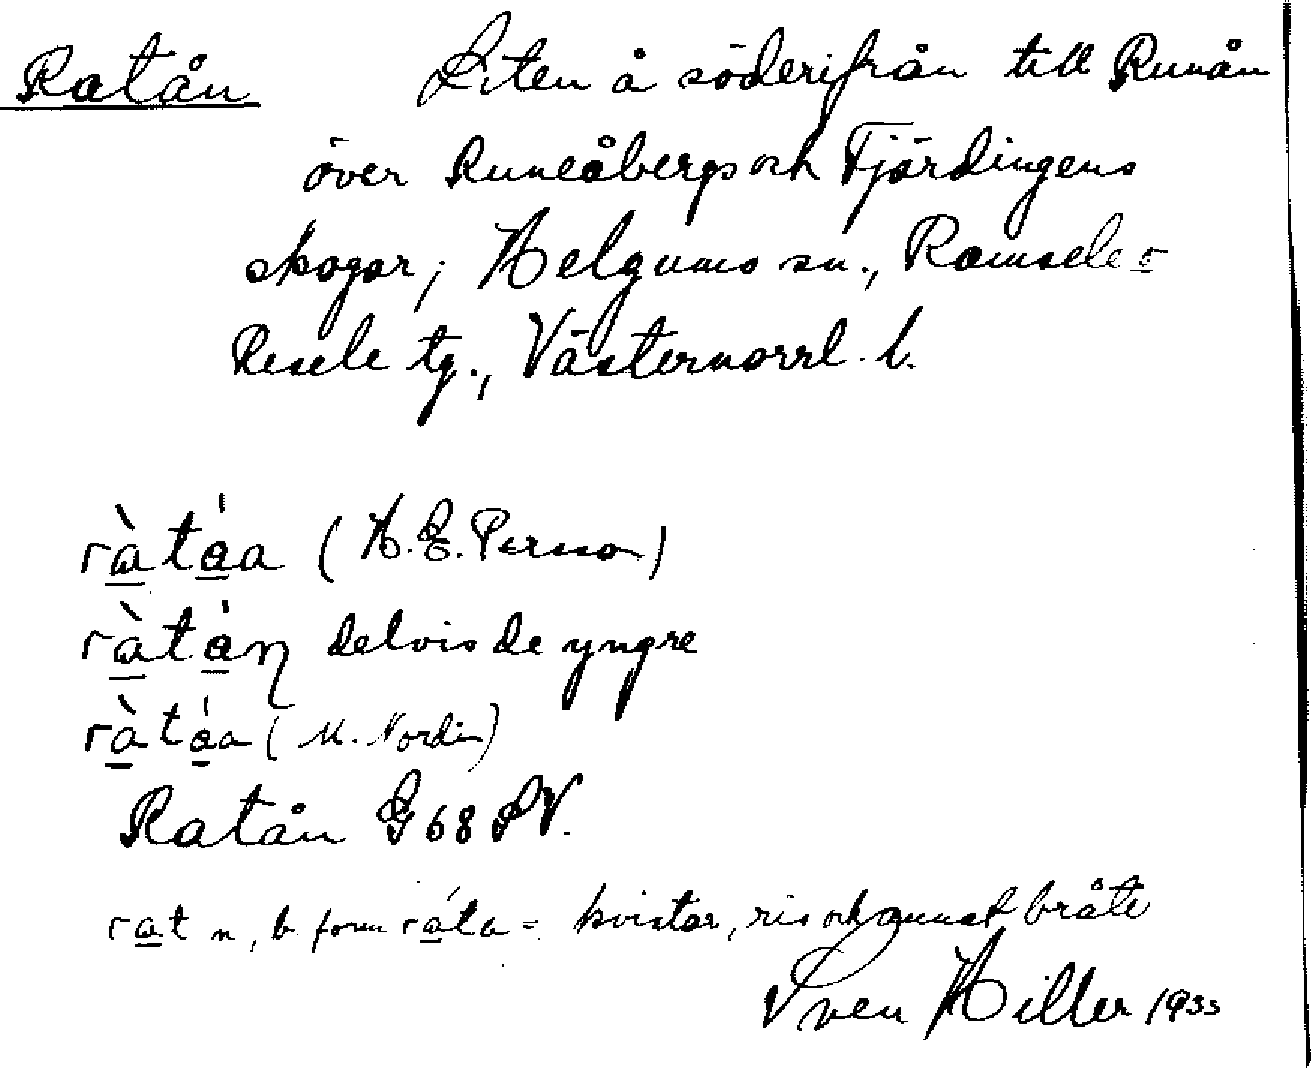 Ratån Liten å söderifrån till Runån
över Runeåbergs och Fjärdingens
skogar; Helgums sn., Ramsele o
Resele tg., Västernorrl. l.
ràtáa (H. E. Person)
ràtáɳ delvis de yngre
ràtáa (M. Nordin)
Ratån G 68 SV.
rat n, b. form ráta = kvistar, ris och annat bråte
Sven Hiller 1933